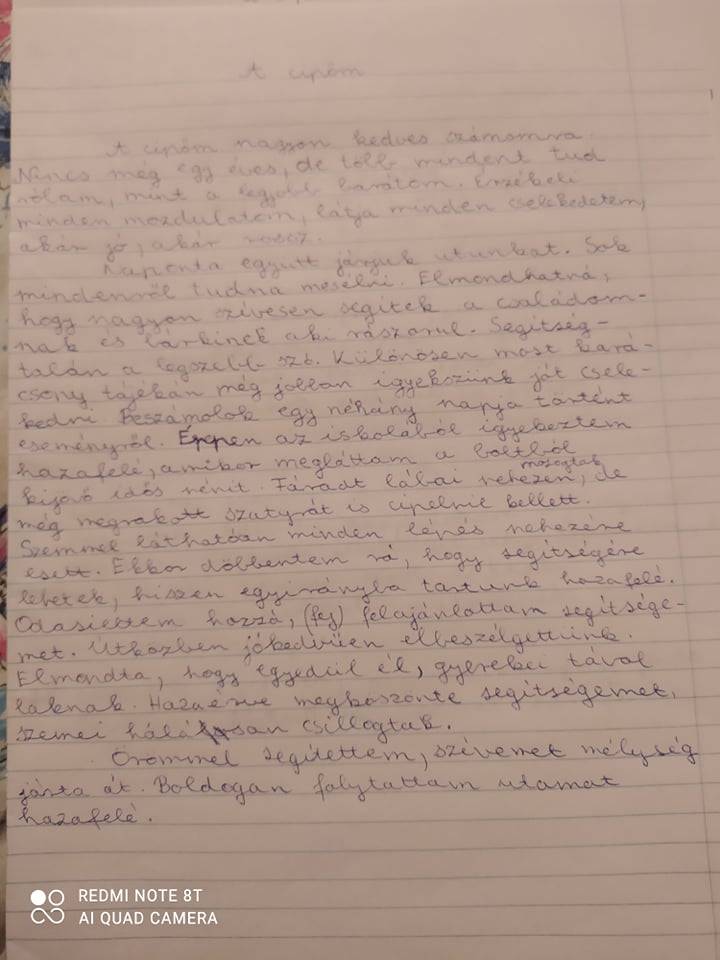 A cipőm
A cipőm nagyon kedves számomra.
Nincs még egy éves, de több mindent tud
rólam, mint a legjobb barátom. Érzékeli
minden mozdulatom, látja minden cselekedetem,
akár jó, akár rossz.
Naponta együtt járjuk utunkat. Sok
mindenről tudna mesélni. Elmondhatná,
hogy nagyon szívesen segítek a családom-
nak és bárkinek aki rászorul. Segítség-
talán a legszebb szó. Különösen most kará-
csony tájékán még jobban igyekszünk jót csele-
kedni. Beszámolok egy néhány napja történt
eseményről. Éppen az iskolából igyekeztem
hazafelé, amikor megláttam a boltból
kijövő idős nénit. Fáradt lábai nehezen mozogtak, de
még megrakott szatyrát is cipelnie kellett.
Szemmel láthatóan minden lépés nehezére
esett. Ekkor döbbentem rá, hogy segítségére
lehetek, hiszen egyirányba tartunk hazafelé.
Odasiettem hozzá, (fej) felajánlottam segítsége-
met. Útközben jókedvűen elbeszélgettünk.
Elmondta, hogy egyedül él, gyerekei tával
laknak. Hazaérve megköszönte segítségemet,
szemei hálásan csillogtak.
Örömmel segítettem, szívemet mélység
járta át. Boldogan folytattam utamat
hazafelé.
REDMI NOTE 8T
AI QUAD CAMERA